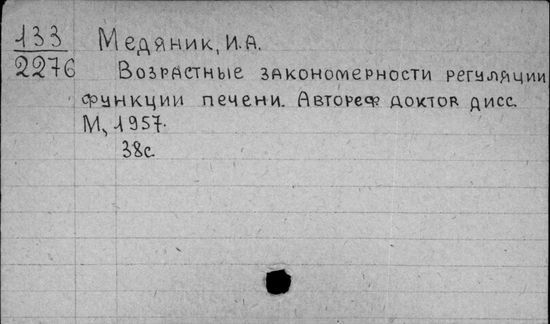 133 Медяник, И.А.
2276 Возрастные закономерности регуляции
функции печени. Автореф доктор дисс.
М, 1957.
38с.